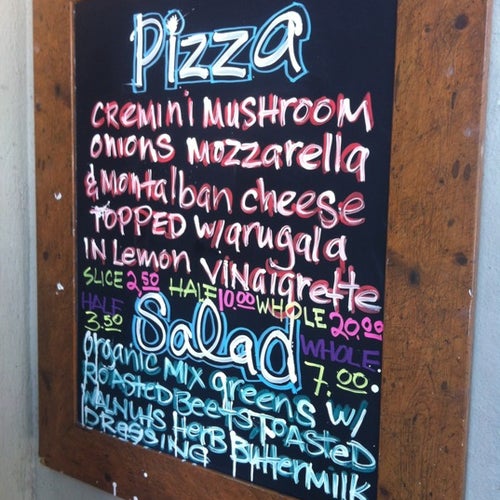 Pizza
CREMINI MUSHROOM
ONIONS MOZZARELLA
& MONTALBAN CHEESE
TOPPED W/ARUGALA
IN LEMON VINAIGRETTE
SLICE 2.50 HALF 10.00 WHOLE 20.00
HALF 3.50 Salad WHOLE 7.00
ORGANIC MIX GREENS W/
ROASTED BEETS TOASTED
WALNUTS HERB BUTTERMILK
DRESSING